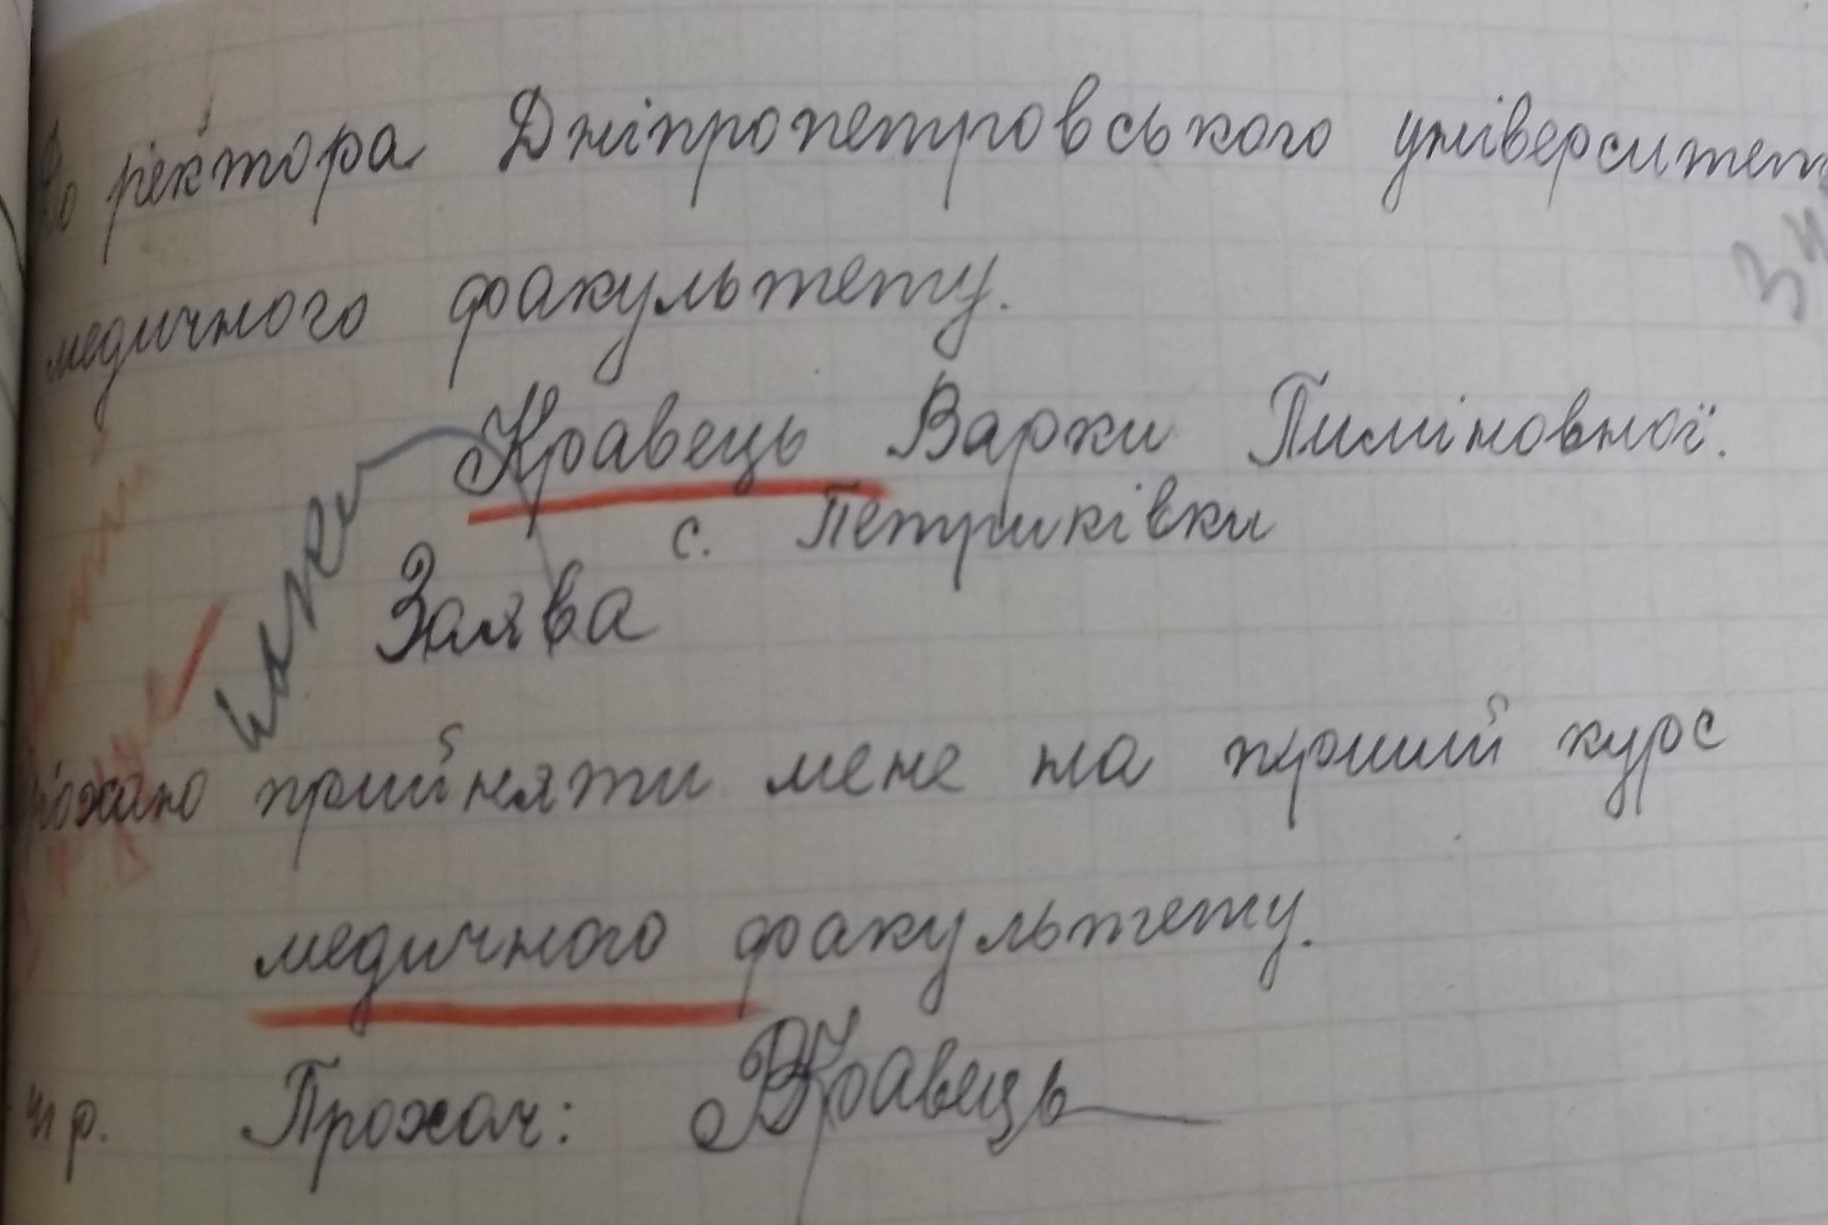 До ріектора Дніпропетровського університет
медичного факультету.
Кравець Варки Пиміновної.
с. Петриківки
Заява
прохаю прийняти мене на прший курс
медичного факультету.
41 р. Прохач: ВКравець